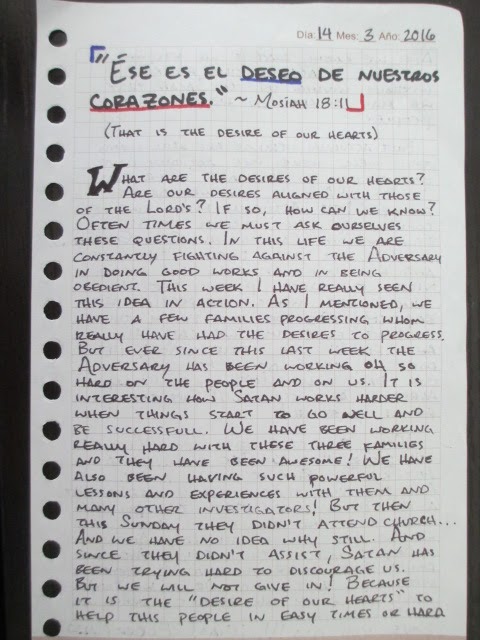 Día: 14 Mes: 3 Año: 2016
"Ése es el deseo de nuestros
corazones." ~ Mosiah 18:11
(That is the desire of our hearts)
What are the desires of our hearts?
Are our desires aligned with those
of the Lord's? If so, how can we know?
Often times we must ask ourselves
these questions. In this life we are
constantly fighting against the Adversary
in doing good works and in being
obedient. This week I have really seen
this idea in action. As I mentioned, we
have a few families progressing whom
really have had the desires to progress.
But ever since this last week the
Adversary has been working oh so
hard on the people and on us. It is
interesting how Satan works harder
when things start to go well and
be successfull. We have been working
really hard with these three families
and they have been awesome! We have
also been having such powerful
lessons and experiences with them and
many other investigators! But then
this Sunday they didn't attend church...
And we have no idea why still. And
since they didn't assist, Satan has
been trying hard to discourage us.
But we will not give in! Because
it is the "desire of our hearts" to
help this people in easy times or hard